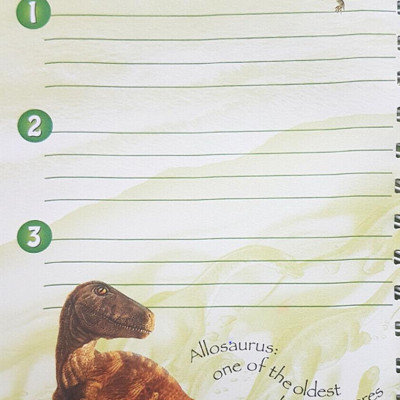 1
2
3
Allosaurus:
one of the oldest